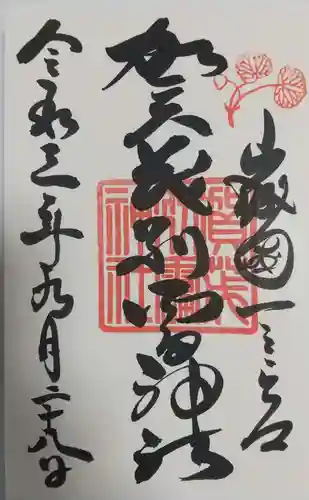 山城國一之宮
賀茂別雷神社
令和三年九月二十八日
賀茂
別雷
神社